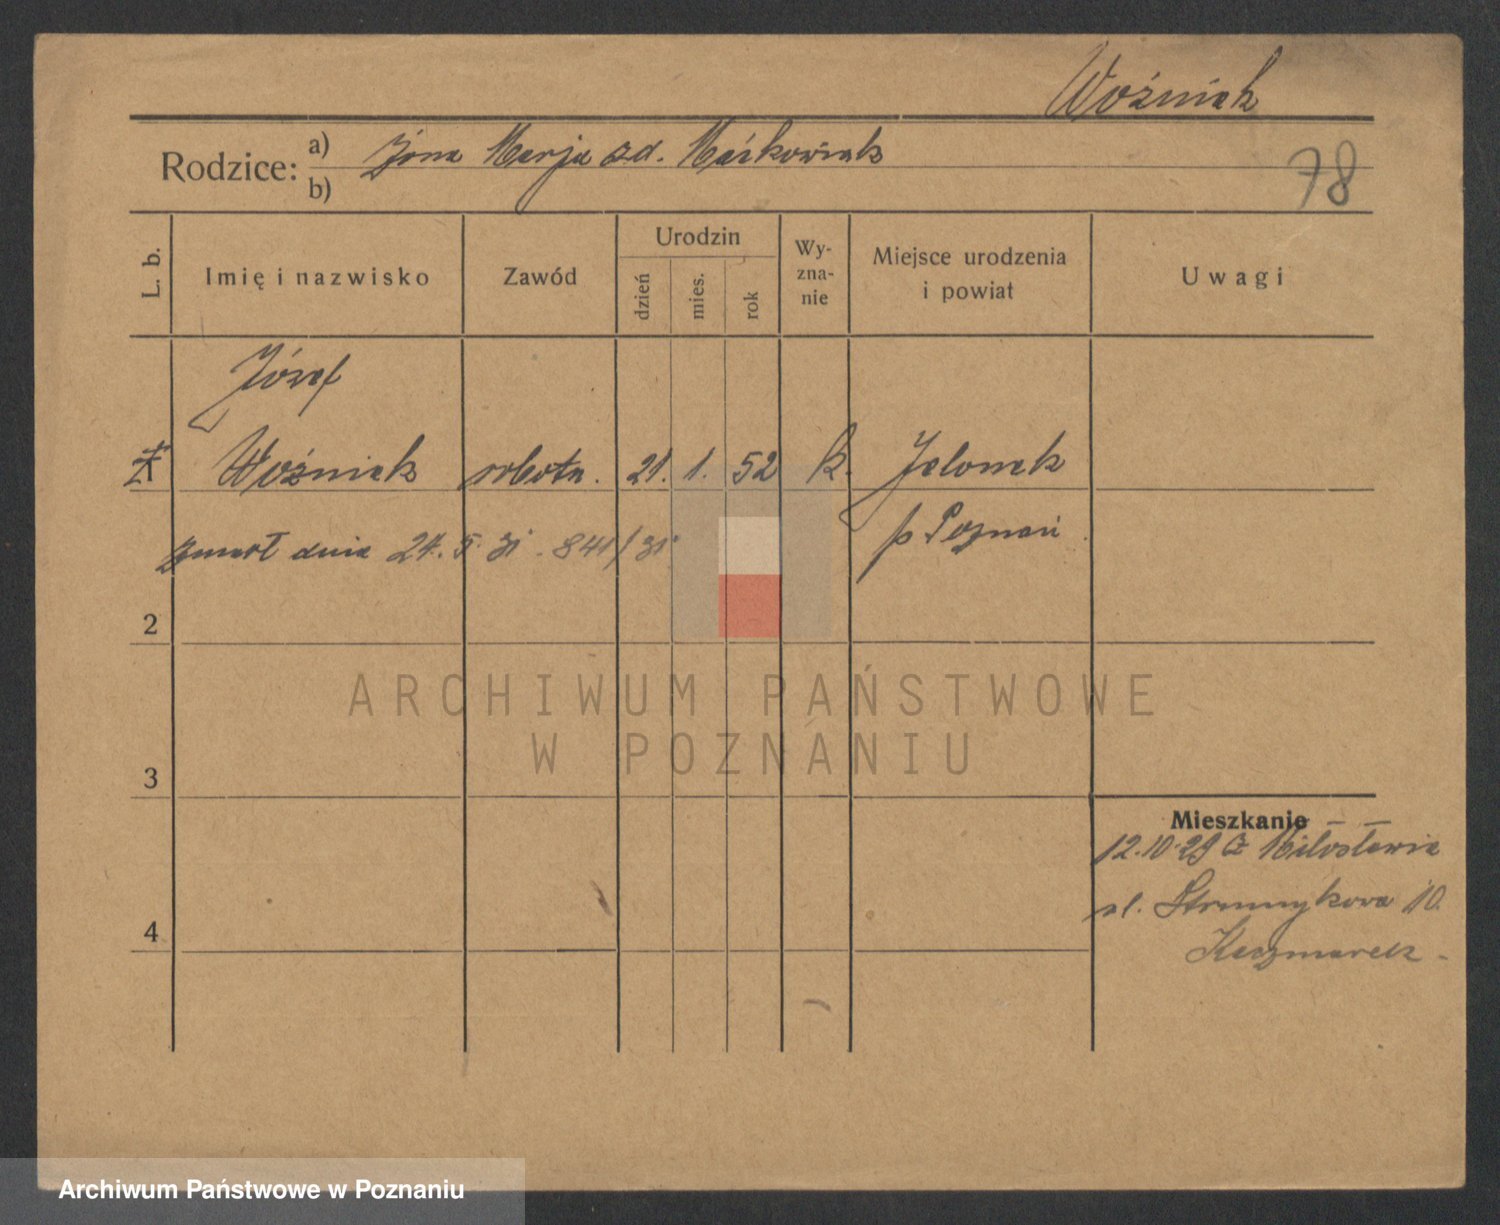 Woźniak
Rodzice: a) Jóna Marja zd. Maćkowiak
b)
78
L. b. Imię i nazwisko Zawód Urodzin dzień mies. rok Wy-zna-nie Miejsce urodzenia i powiat Uwagi
Józef
Woźniak robotn. 21. 1. 52 k. Jelonek
p Poznań
zmarł dnia 24. 5. 31 . 841/31
2
ARCHIWUM PAŃSTWOWE
W POZNANIU
3
Mieszkanie
12.10.29 z Miłosławia
ul. Strumykowa 10.
Kaczmarek -
4
Archiwum Państwowe w Poznaniu